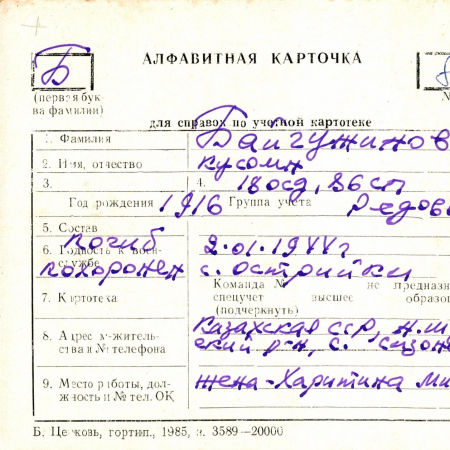 Б
АЛФАВИТНАЯ КАРТОЧКА
(первая бук-
ва фамилии)
для справок по учетной картотеке
1. Фамилия Байгужинов
2. Имя, отчество Кусоми
3. 4. 18 осд, 86 сп
Год рождения 1916 Группа учета Рядово
5. Состав
погиб
6. Годность к воен- 2.01.1944 г
службе
похоронен с. Острийки
Команда № не предназна
7. Картотека спецучет высшее образо
(подчеркнуть)
8. Адрес м-житель- Казахская ССР,
ства и № телефона ский р-н, с.
9. Место работы, дол- жена-Харитина Ми
жность и № тел. ОК
Б. Церковь, гортип., 1985, з. 3589—20000